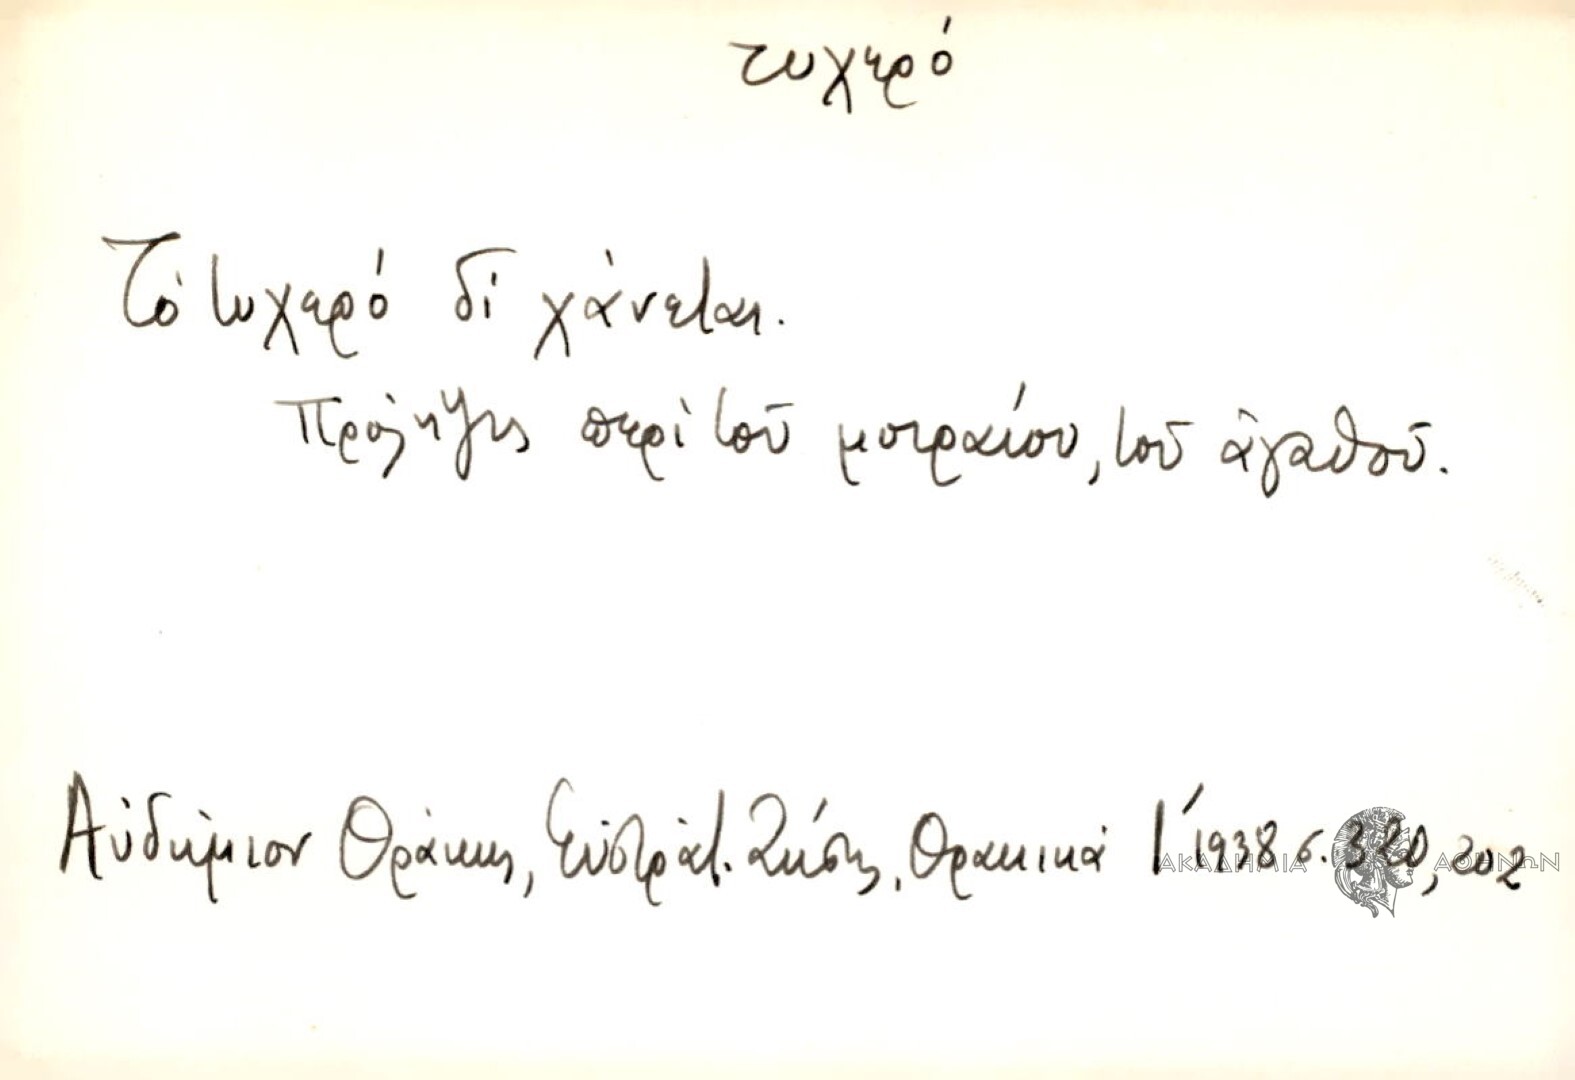 τυχερό
Τὸ τυχερό δὶ χάνεται.
Πρόληψις περὶ τοῦ μοιραίου, τοῦ ἀγαθοῦ.
Αὐδήμιον Θράκης, Εὐστράτ. Ζήσης, Θρακικά Ι΄ 1938 σ. 320, 202
ΑΚΑΔΗΜΙΑ ΑΘΗΝΩΝ